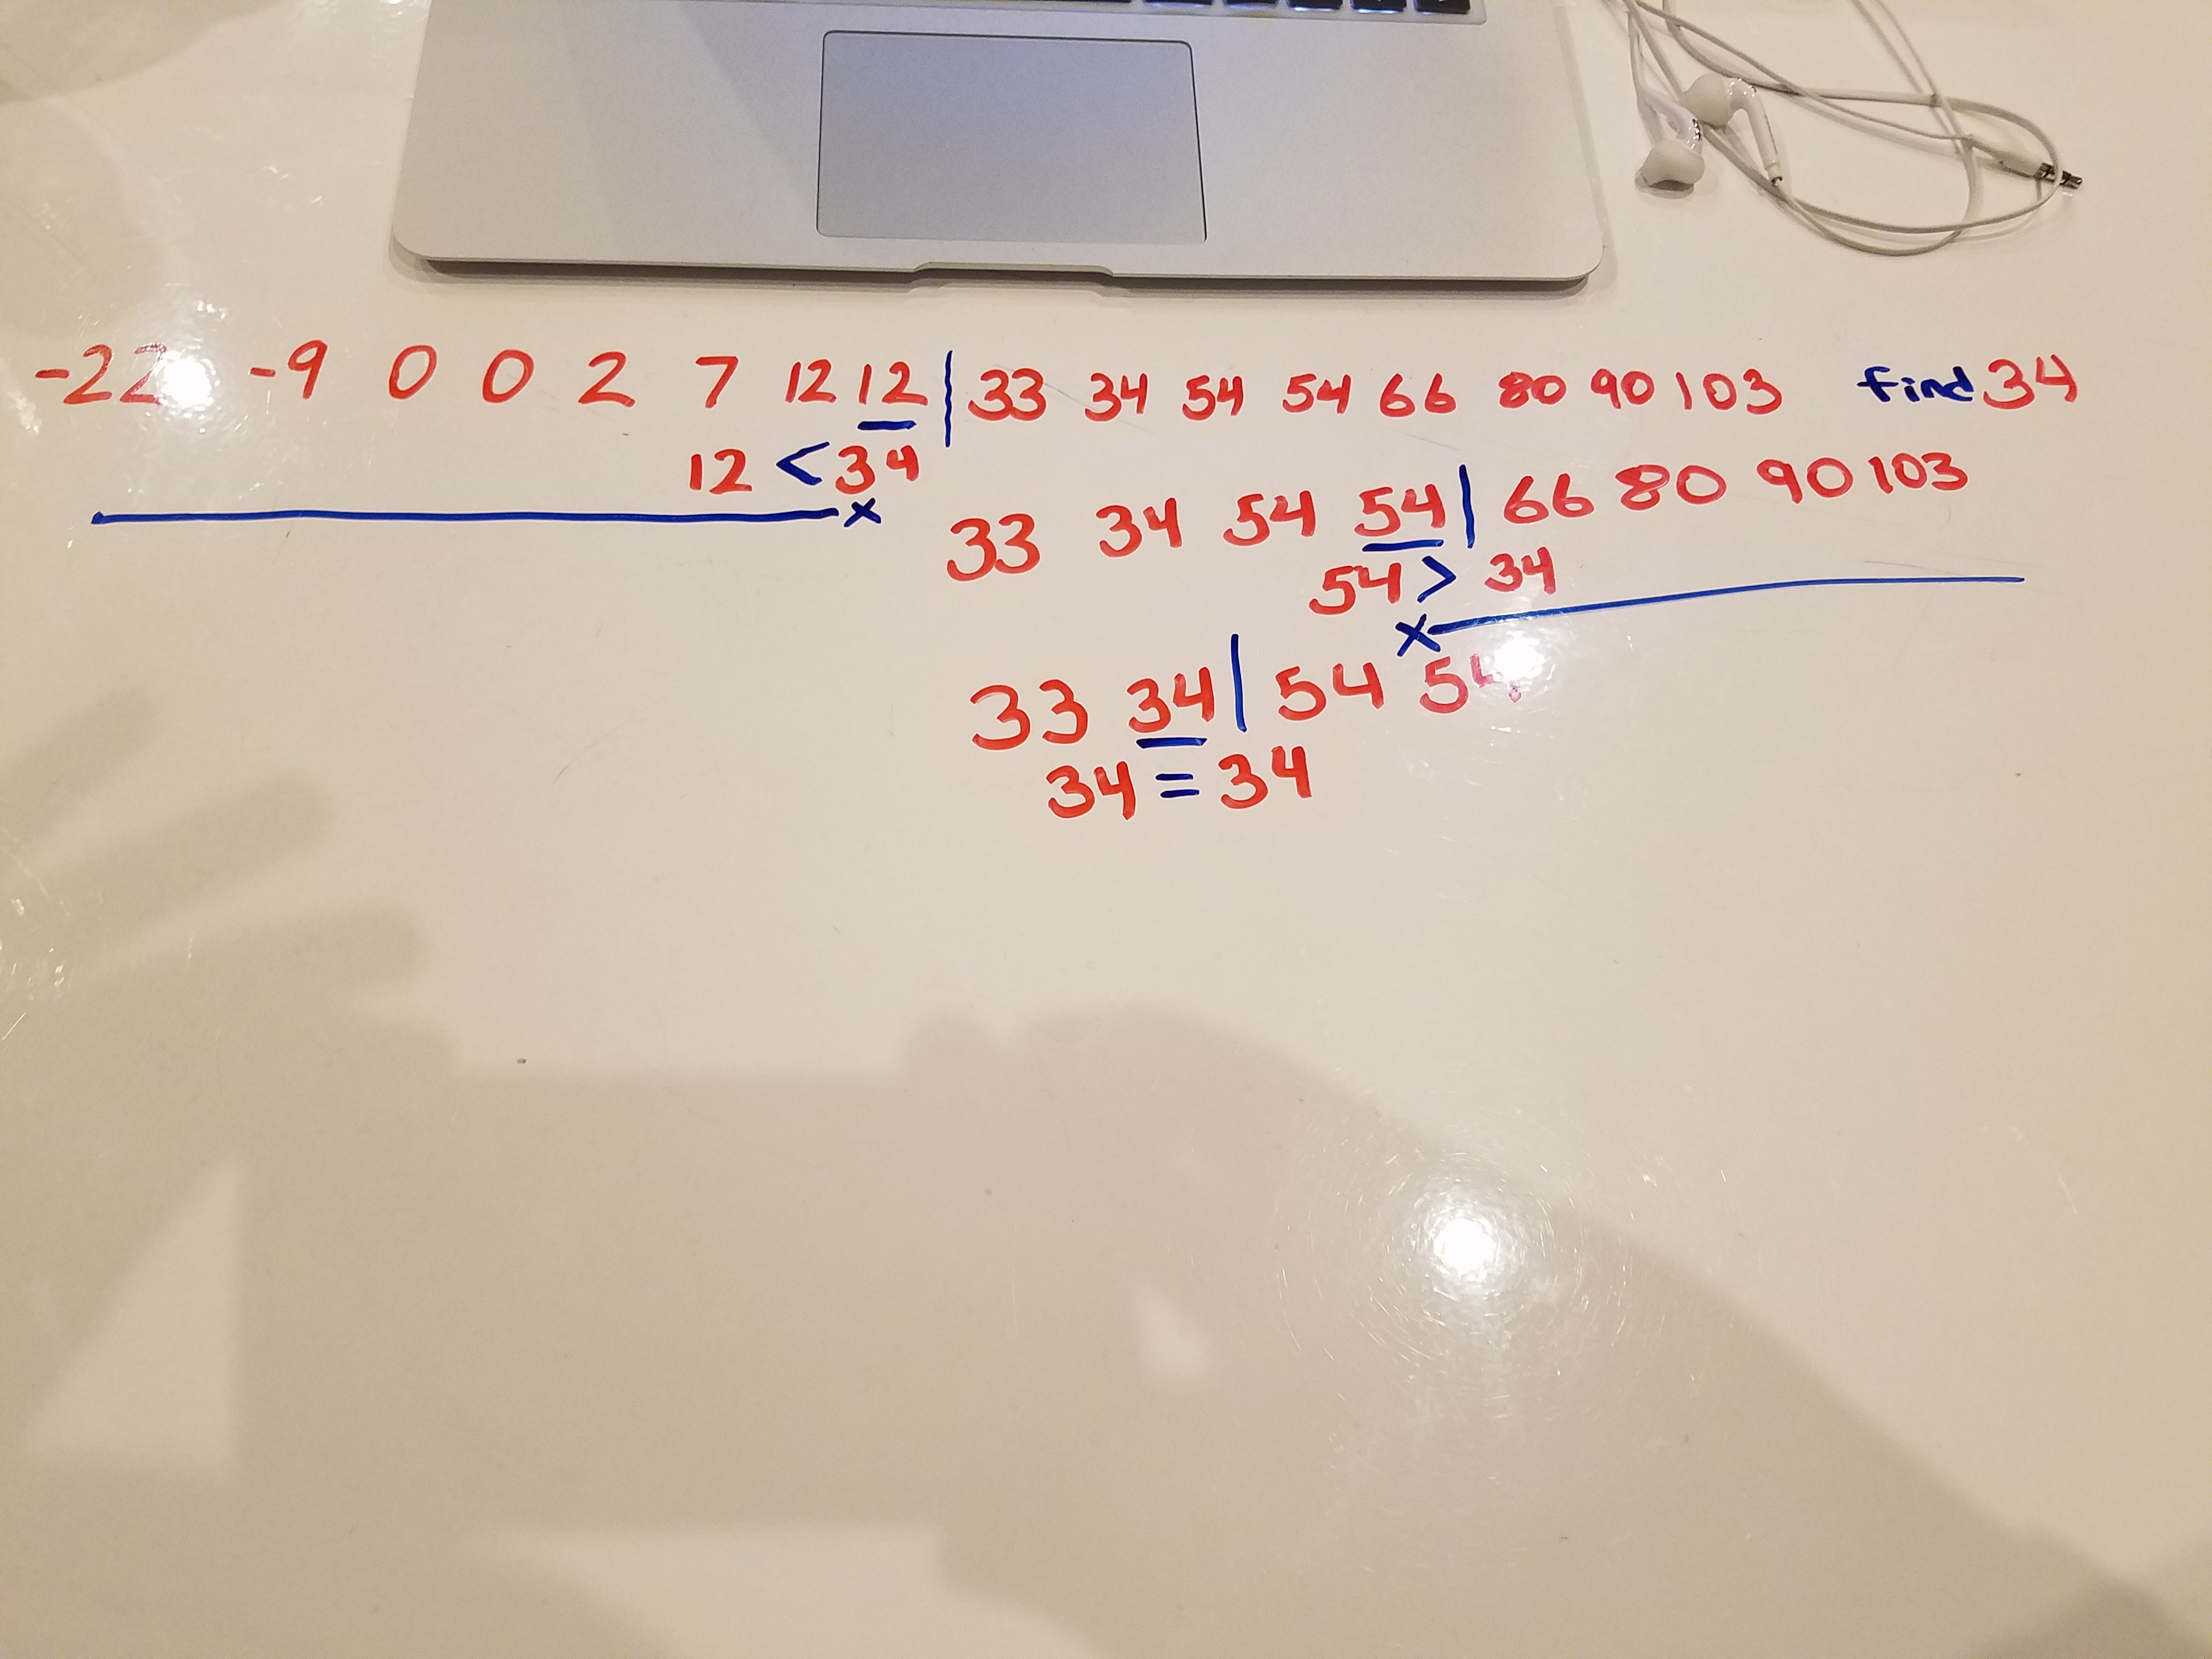 -22 -9 0 0 2 7 12 12 | 33 34 54 54 66 80 90 103 find 34
12 < 34
x
33 34 54 54 | 66 80 90 103
54 > 34
x
33 34 | 54 54
34 = 34